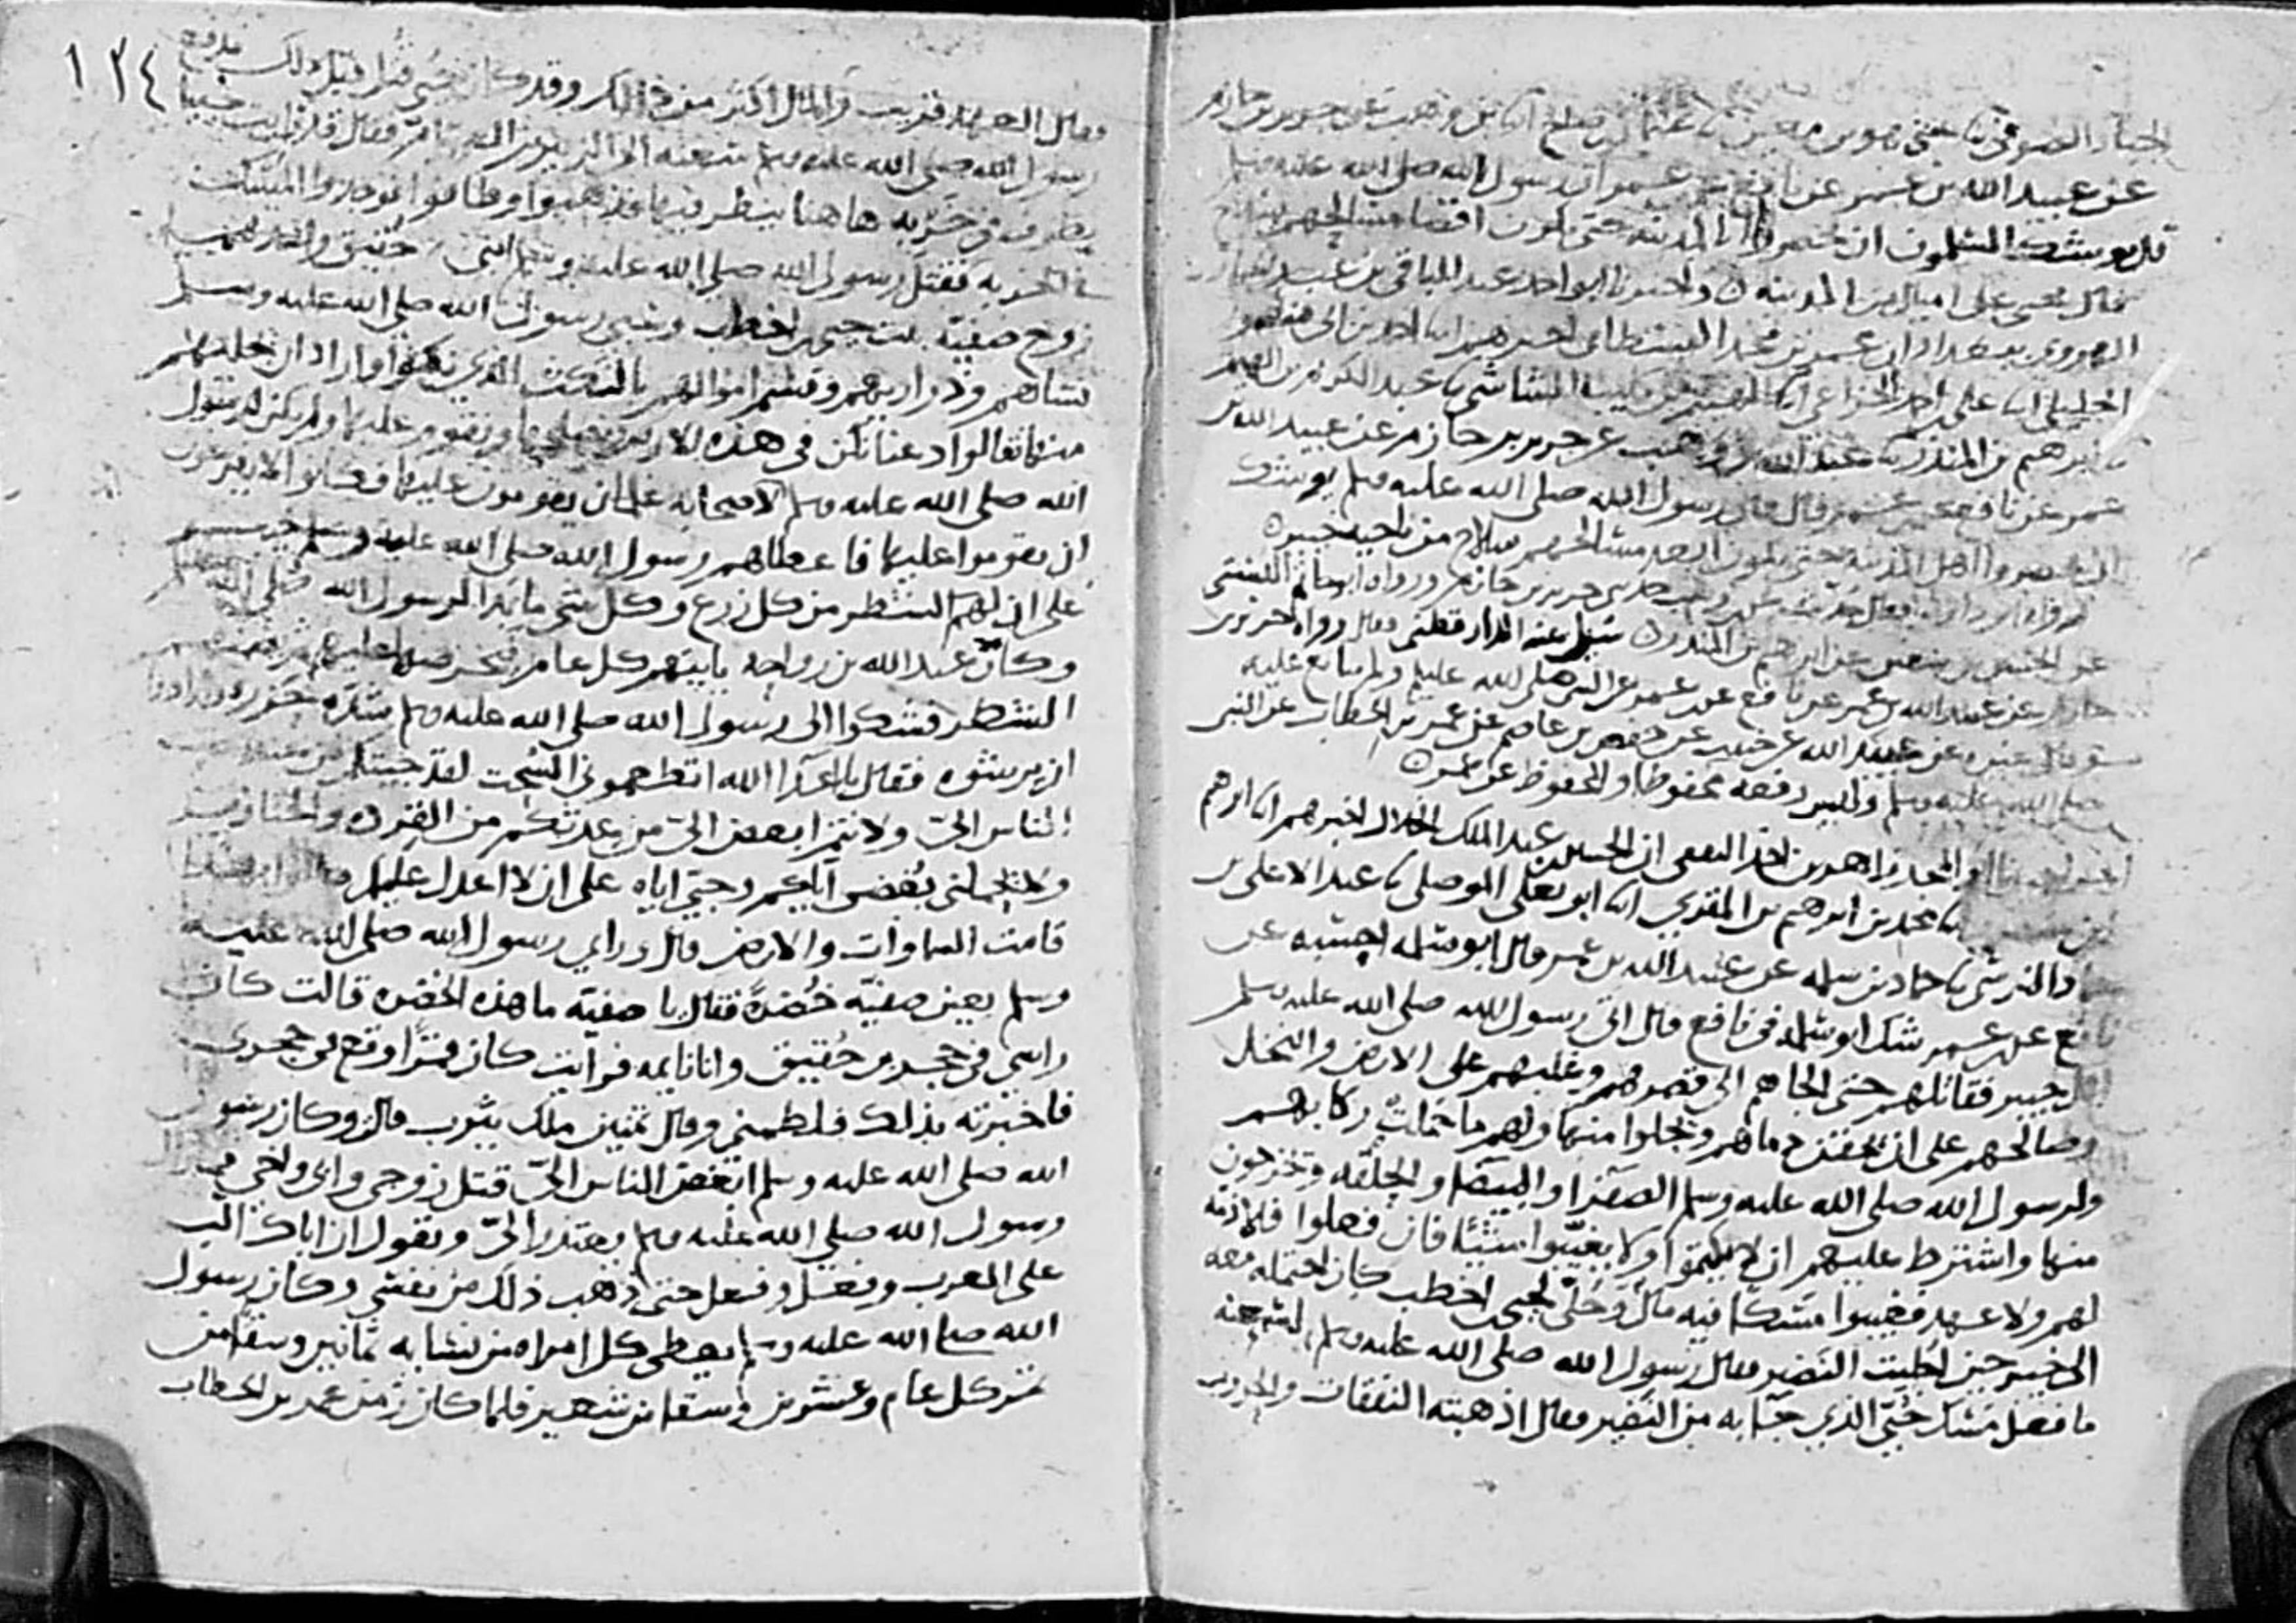 عن عبيد الله بن عمر عن نافع عن بن عمر ان رسول الله صلى الله عليه وسلم
قال يوشك المسلمون ان يحصروا الى المدينة حتى يكون اقصا مسالحهم
الهروي ببغداد ان عمر بن محمد البسطامي اخبرهم ابنا احمد بن ابي منصور
الخليلي ابنا علي بن احمد الخزاعي ابنا الهيثم بن كليب الشاشي نا عبد الكريم بن الهيثم
نا ابرهيم بن المنذر نا عبد الله بن وهب عن جرير بن حازم عن عبيد الله بن
عمر عن نافع عن بن عمر قال قال رسول الله صلى الله عليه وسلم يوشك
عن ابرهيم بن المنذر سيل عنه الدارقطني فقال رواه جرير بن
حازم عن عبيد الله بن عمر عن نافع عن بن عمر عن النبي صلى الله عليه وسلم ولم يتابع عليه
عن عبيد الله عن خبيب عن حفص بن عاصم عن عمر بن الخطاب عن النبي
صلى الله عليه وسلم وليس رفعه محفوظا والمحفوظ عن عمر
زاهر بن احمد الثقفي ان الحسين بن عبد الملك الخلال اخبرهم ابنا ابرهيم
نا محمد بن ابرهيم بن المقري ابنا ابو يعلى الموصلي نا عبد الاعلى بن
حماد النرسي نا حماد بن سلمه عن عبيد الله بن عمر قال ابو سلمه احسبه عن
نافع عن بن عمر شك ابو سلمه في نافع قال اتى رسول الله صلى الله عليه وسلم
اهل خيبر فقاتلهم حتى الجاهم الى قصرهم وغلبهم على الارض والنخل
وصالحهم على ان يحقن دماهم ويجلوا منها ولهم ما حملت ركابهم
ولرسول الله صلى الله عليه وسلم الصفرا والبيضا والحلقه ويخرجون
منها واشترط عليهم ان لا يكتموا ولا يغيبوا شيئا فان فعلوا فلا ذمة
لهم ولا عهد فغيبوا مسكا فيه مال وحلي لحيي بن اخطب كان احتمله معه
الى خيبر حين اجليت النضير فقال رسول الله صلى الله عليه وسلم لسعيه
ما فعل مسك حيي الذي جا به من النضير فقال اذهبته النفقات والحروب
١٢٤
فقال العهد قريب والمال اكثر من ذلك وقد كان حيي قتل قبل ذلك فدفعه
رسول الله صلى الله عليه وسلم الى الزبير بن العوام فقال قد رايت حييا
يطوف في خربه هاهنا ينظر فيها فذهبوا وطافوا فوجدوا المسك
في الخربه فقتل رسول الله صلى الله عليه وسلم ابني حقيق واحدهما
زوج صفيه بنت حيي بن اخطب وسبى رسول الله صلى الله عليه وسلم
نساهم وذراريهم وقسم اموالهم بالنكث الذي نكثوا واراد ان يجليهم
منها فقالوا دعنا نكن في هذه الارض نصلحها ونقوم عليها ولم يكن لرسول
الله صلى الله عليه وسلم لاصحابه غلمان يقومون عليها وكانوا لا يفرغون
ان يقوموا عليها فاعطاهم رسول الله صلى الله عليه وسلم خيبر
على ان لهم الشطر من كل زرع وكل شي ما بدا لرسول الله صلى الله عليه وسلم
وكان عبد الله بن رواحه ياتيهم كل عام فيخرصها عليهم ثم يضمنهم
الشطر فشكوا الى رسول الله صلى الله عليه وسلم شدة خرصه وارادوا
ان يرشوه فقال يا اعدا الله اتطعموني السحت لقد جيتكم من عند احب
الناس الي ولانتم ابغض الي من عدتكم من القرده والخنازير
ولا يحملني بغضي اياكم وحبي اياه على ان لا اعدل عليكم
قامت السماوات والارض قال وراى رسول الله صلى الله عليه
وسلم بعين صفيه خضرة فقال يا صفيه ما هذه الخضره قالت كان
راسي في حجر بن حقيق وانا نايمه فرايت كان قمرا وقع في حجري
فاخبرته بذلك فلطمني وقال تمنين ملك يثرب قالت وكان رسول
الله صلى الله عليه وسلم ابغض الناس الي قتل زوجي وابي واخي
ورسول الله صلى الله عليه وسلم يعتذر الي ويقول ان اباك الب
على العرب وفعل وفعل حتى ذهب ذلك من نفسي وكان رسول
الله صلى الله عليه وسلم يعطي كل امراه من نسايه ثمانين وسقا من
تمر كل عام وعشرين وسقا من شعير فلما كان زمن عمر بن الخطاب